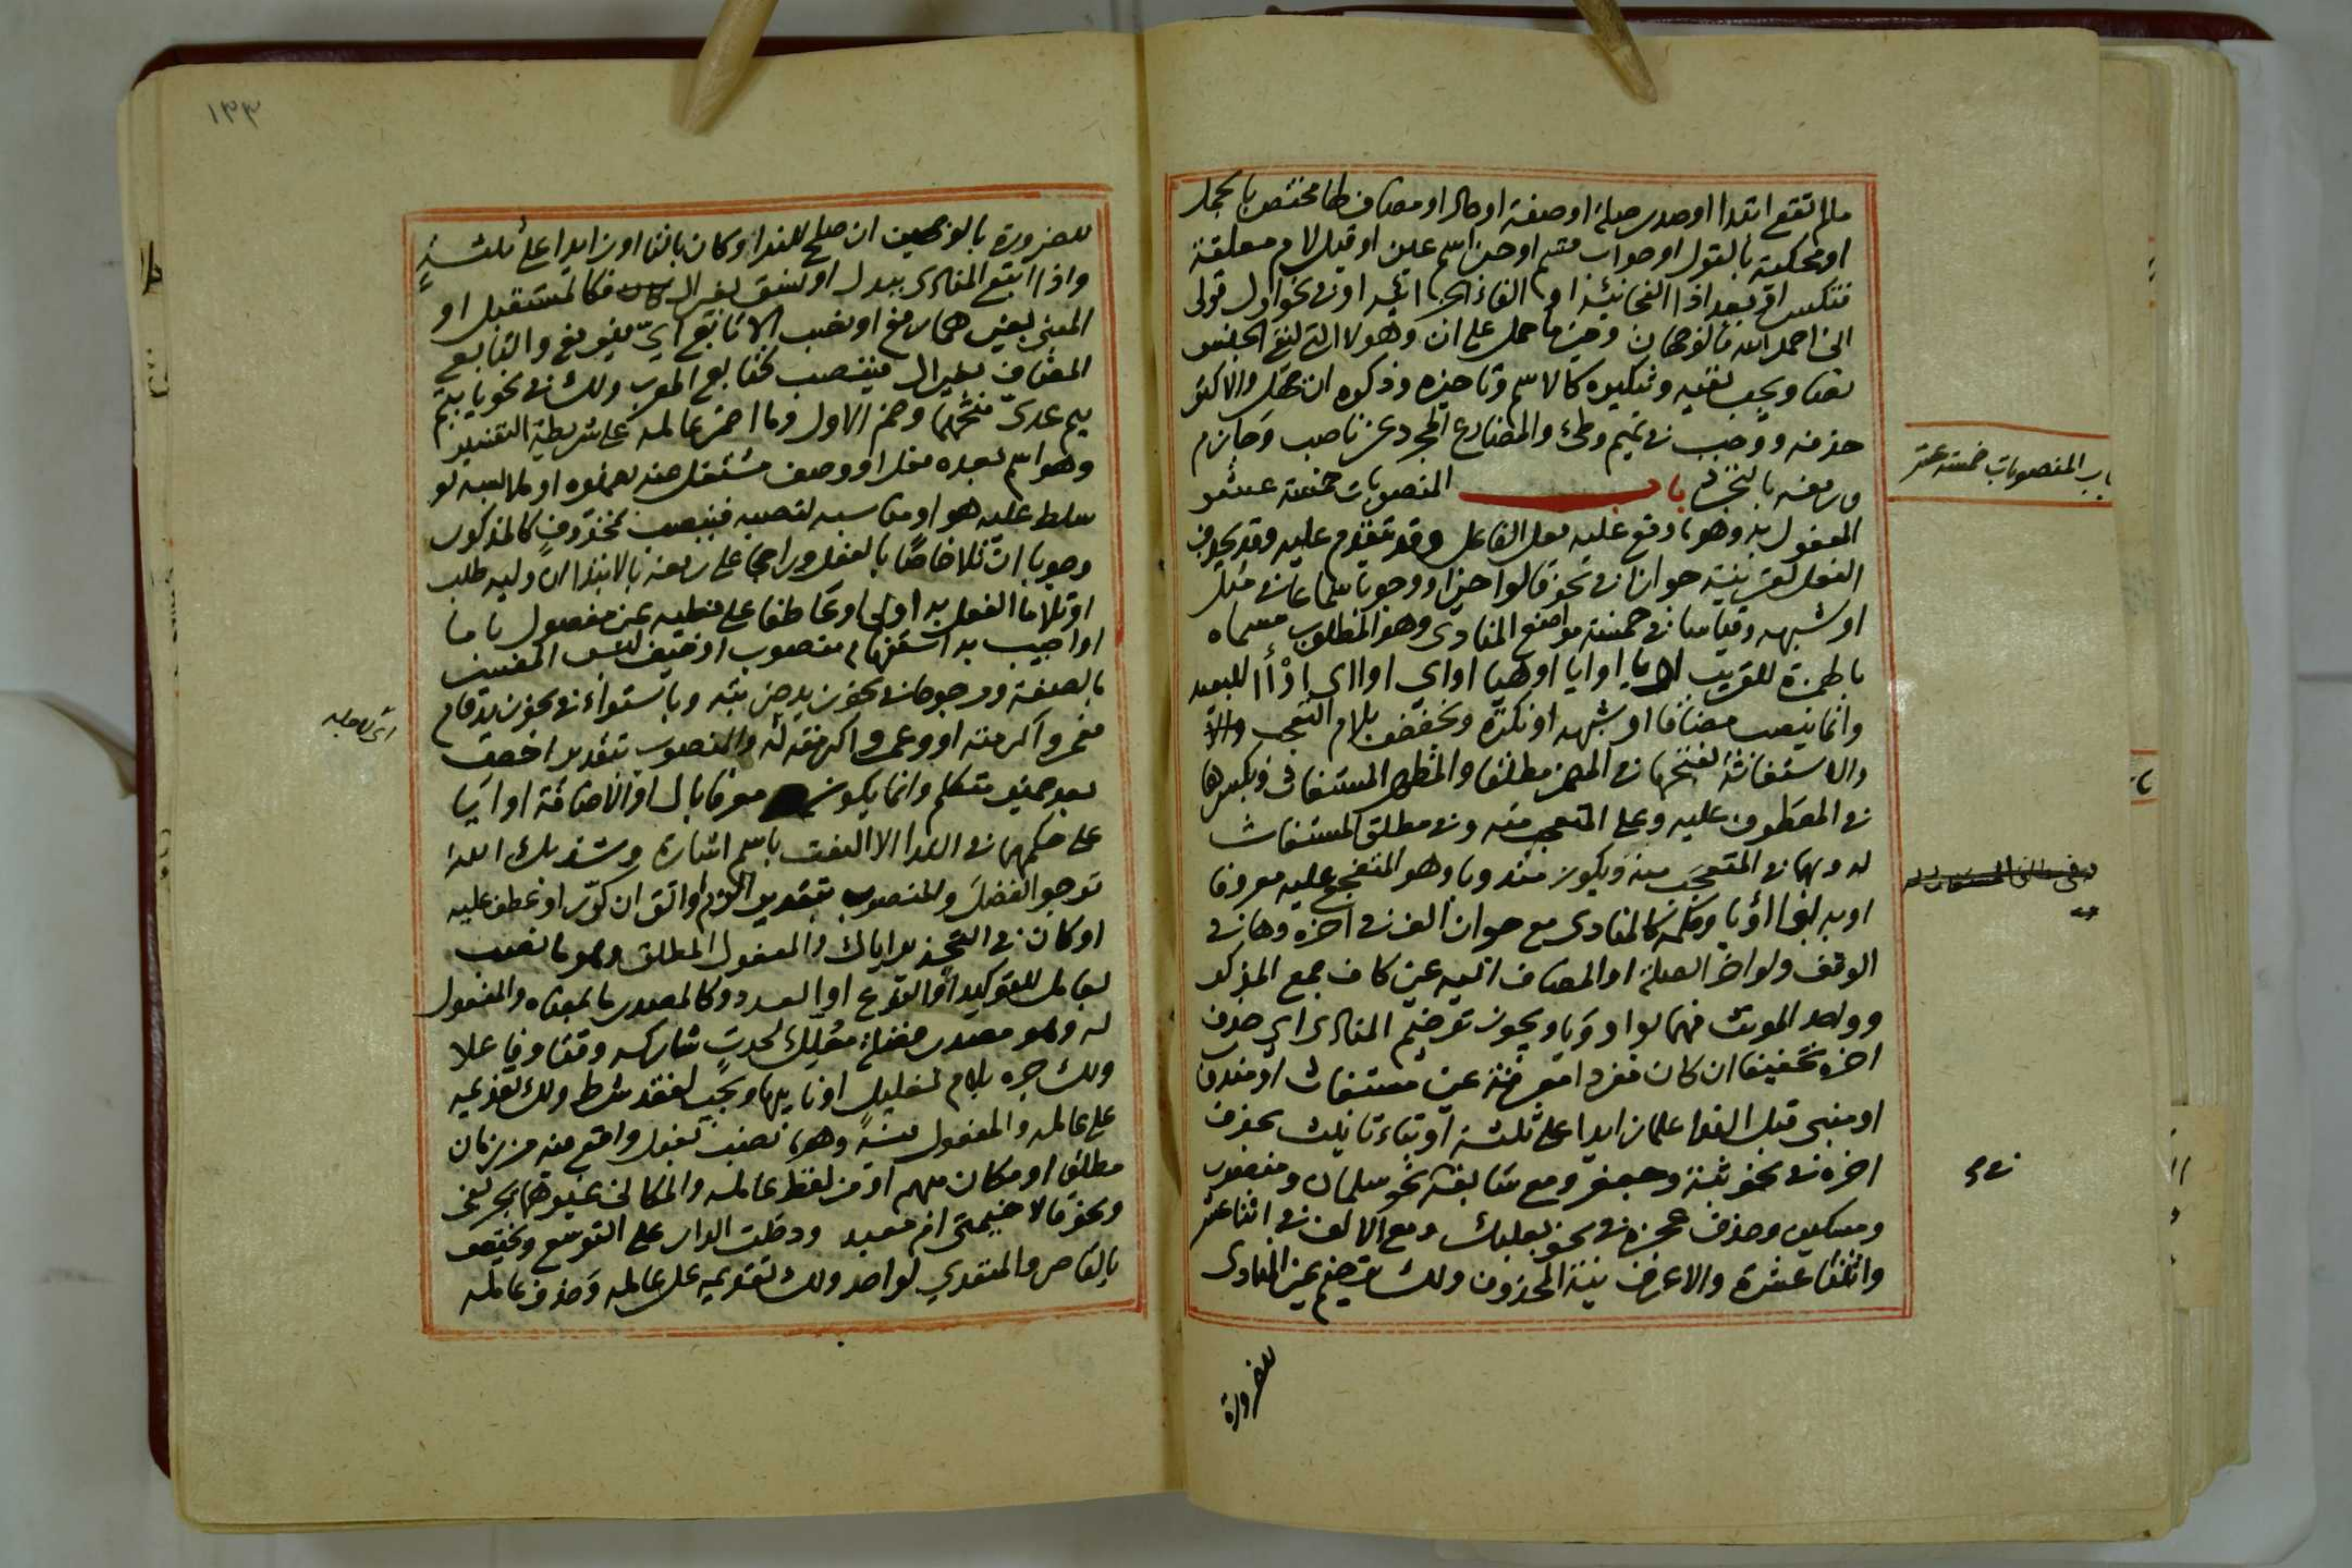 مالم تقع ابتدا او صدر صلة او صفة او حال او مضاف لها مختص بالجمل
او محكية بالقول او جواب قسم او خبر اسم عين او قبل لام معلقة
فتكسر او بعد اذا الفجائية او الفاء الجزائية او في نحو اول قولي
اني احمد الله فالوجهان وخبر ما حمل على ان وهو لا التي لنفي الجنس
نصا ويجب نفيه وتنكيره كالاسم وتاخيره وذكره ان جهل والاكثر
حذفه ووجب في تميم وطيء والمضارع المجرد عن ناصب وجازم
ورفعه بالتجرد باب المنصوبات خمسة عشر
المفعول به وهو ما وقع عليه فعل الفاعل وقد يتقدم عليه وقد يحذف
الفعل لقرينة جوازا في نحو قالوا خيرا ووجوبا سماعا في مثل
او شبهه وقياسا في خمسة مواضع المنادى وهو المطلوب مسماه
بالهمزة للقريب او يا او ايا او هيا او اي او ااي او أا للبعيد
وانما ينصب مضافا او شبهه او نكرة ويخفض بلام التعجب
والاستغاثة لفتحها في المضمر مطلقا والمظهر المستغاث وبكسرها
في المعطوف عليه وعلى المتعجب منه وفي مطلق المستغاث
له وبهما في المتعجب منه ويكون مندوبا وهو المتفجع عليه معروفا
او به بوا او يا وحكمه كالمنادى مع جواز الف في اخره وها في
الوقف ولو اخر الصلة او المضاف اليه عين كاف جمع المذكر
وواحد المونث فهما بواو ويا ويجوز ترخيم المنادى اي حذف
اخره تخفيفا ان كان مفردا معرفة غير مستغاث او مندوب
او مبني قبل الندا علما زايدا على ثلثة او بتاء تانيث بحذف
اخره في نحو ثبة وجعفر ومع سابقه نحو سلمان ومنصور
ومسكين وحذف عجزه في نحو بعلبك ومع الالف في اثنا عشر
واثنتا عشرة والاعرف نية المحذوف ولك ترخيم غير المنادى
للضرورة
باب المنصوبات خمسة عشر
في
١٣٣
للضرورة بالوجهين ان صلح للندا وكان بالتا او زايدا على ثلثة
واذا اتبع المنادى ببدل او نسق بغير ال فكالمستقبل او
المبني بغيرهما رفع او نصب الا تابع اي فيرفع والتابع
المضاف بغير ال فينصب كتابع المعرب ولك في نحو يا تيم
تيم عدي فتحهما وضم الاول وما اضمر عامله على شريطة التفسير
وهو اسم بعده فعل او وصف مشتغل عنه بضميره او ملابسه لو
سلط عليه هو او مناسبه لنصبه فينصب بمحذوف كالمذكور
وجوبا ان تلا خاصا بالفعل وراجحا على رفعه بالابتدا ان وليه طلب
او تلا ما الفعل به اولى او عاطفا على فعليه غير مفصول باما
او اجيب به استفهام منصوب او خيف لبس المفسر
بالصفة ومرجوحا في نحو زيد ضربته وباستواء في نحو زيد قام
عمرو اكرمته او وعمرو اكرمته له والمنصوب بتقدير اخص
بعد ضمير متكلم وانما يكون معرفا بال او الاضافة او ايا
على حكمها في الندا الا النعت باسم اشارة وشذ بك الله
نرجو الفضل والمنصوب بتقدير الزم او اتق ان كرر او عطف عليه
او كان في التحذير اياك والمفعول المطلق وهو ما نصب
بعامل للتوكيد او النوع او العدد وكالمصدر ما بمعناه والمفعول
له وهو مصدر فضلة معلل لحدث شاركه وقتا وفاعلا
ولك جره بلام تعليل او نايبها ويجب لفقد شرط ولك تقديمه
على عامله والمفعول فيه وهو ما نصب بفعل واقع فيه من زمان
مطلقا او مكان مبهم او من لفظ عامله والمكاني غيرهما بجر بفي
ونحو قالا خيمتي ام معبد ودخلت الدار على التوسع ويختص
بالقاصر والمتعدي لواحد ولك تقديمه على عامله وحذف عامله